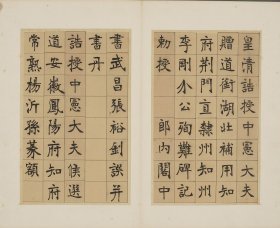 皇清誥授中憲大夫
贈道銜湖北補用知
府荊門直隸州知州
李剛介公殉難碑記
勅授　郎內閣中
書武昌張裕釗譔并
書丹
誥授中憲大夫候選
道安徽鳳陽府知府
常熟楊沂孫篆額